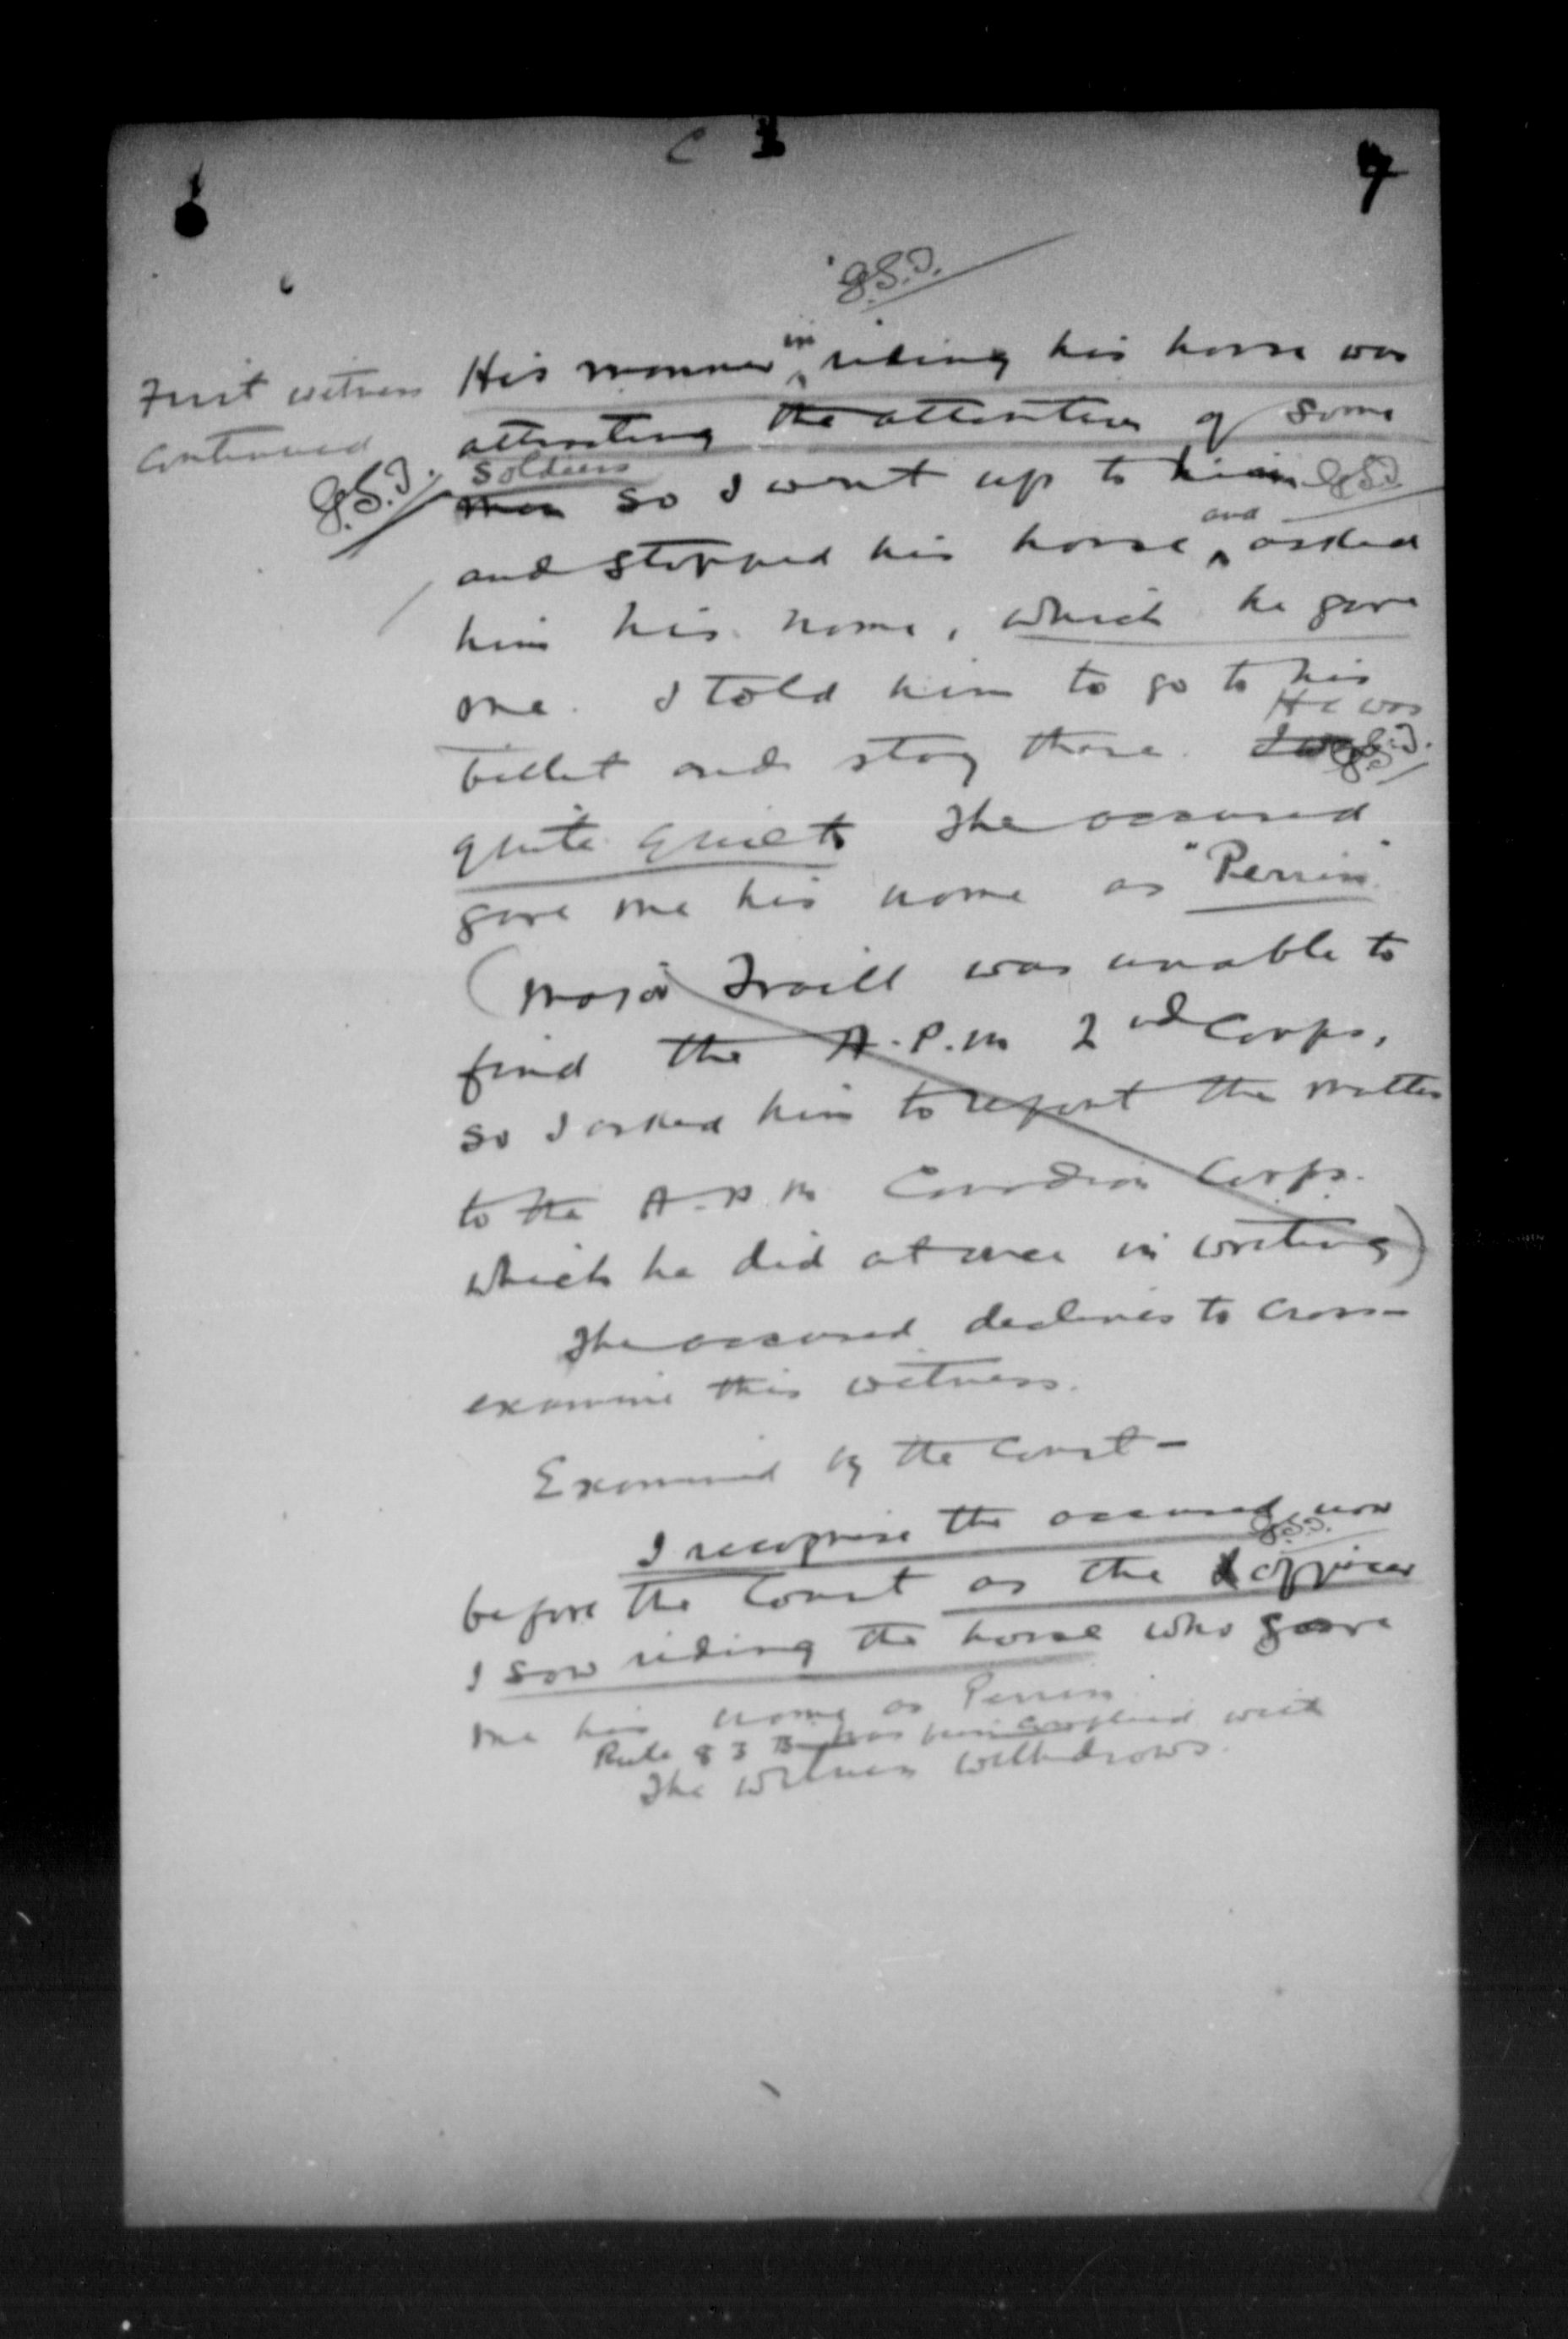 C
7
g.S.I.
First witness
continued
g.S.I.
His manner in riding his horse was
attracting the attention of some
soldiers
men so I went up to him g.S.I.
and stopped his horse, and asked
him his name, which he gave
me. I told him to go to his
He was
billet and stay there. g.S.I.
quite quiet The accused
gave me his name as "Perrin"
(Major Traill was unable to
find the A.P.M 2nd Corps,
so I asked him to report the matter
to the A.P.M Canadian Corps.
which he did at once in writing)
The accused declines to cross-
examine this witness.
Examined by the Court -
I recognise the accused now
g.S.I.
before the Court as the officer
I saw riding the horse who gave
me his name as Perrin.
Rule 83 B has been complied with
The witness withdraws.